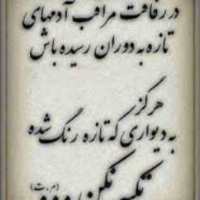 در رفاقت مراقب آدمهای
تازه به دوران رسیده باش
هرگز
به دیواری که تازه رنگ شده
تکیه نکن
(م.ت)